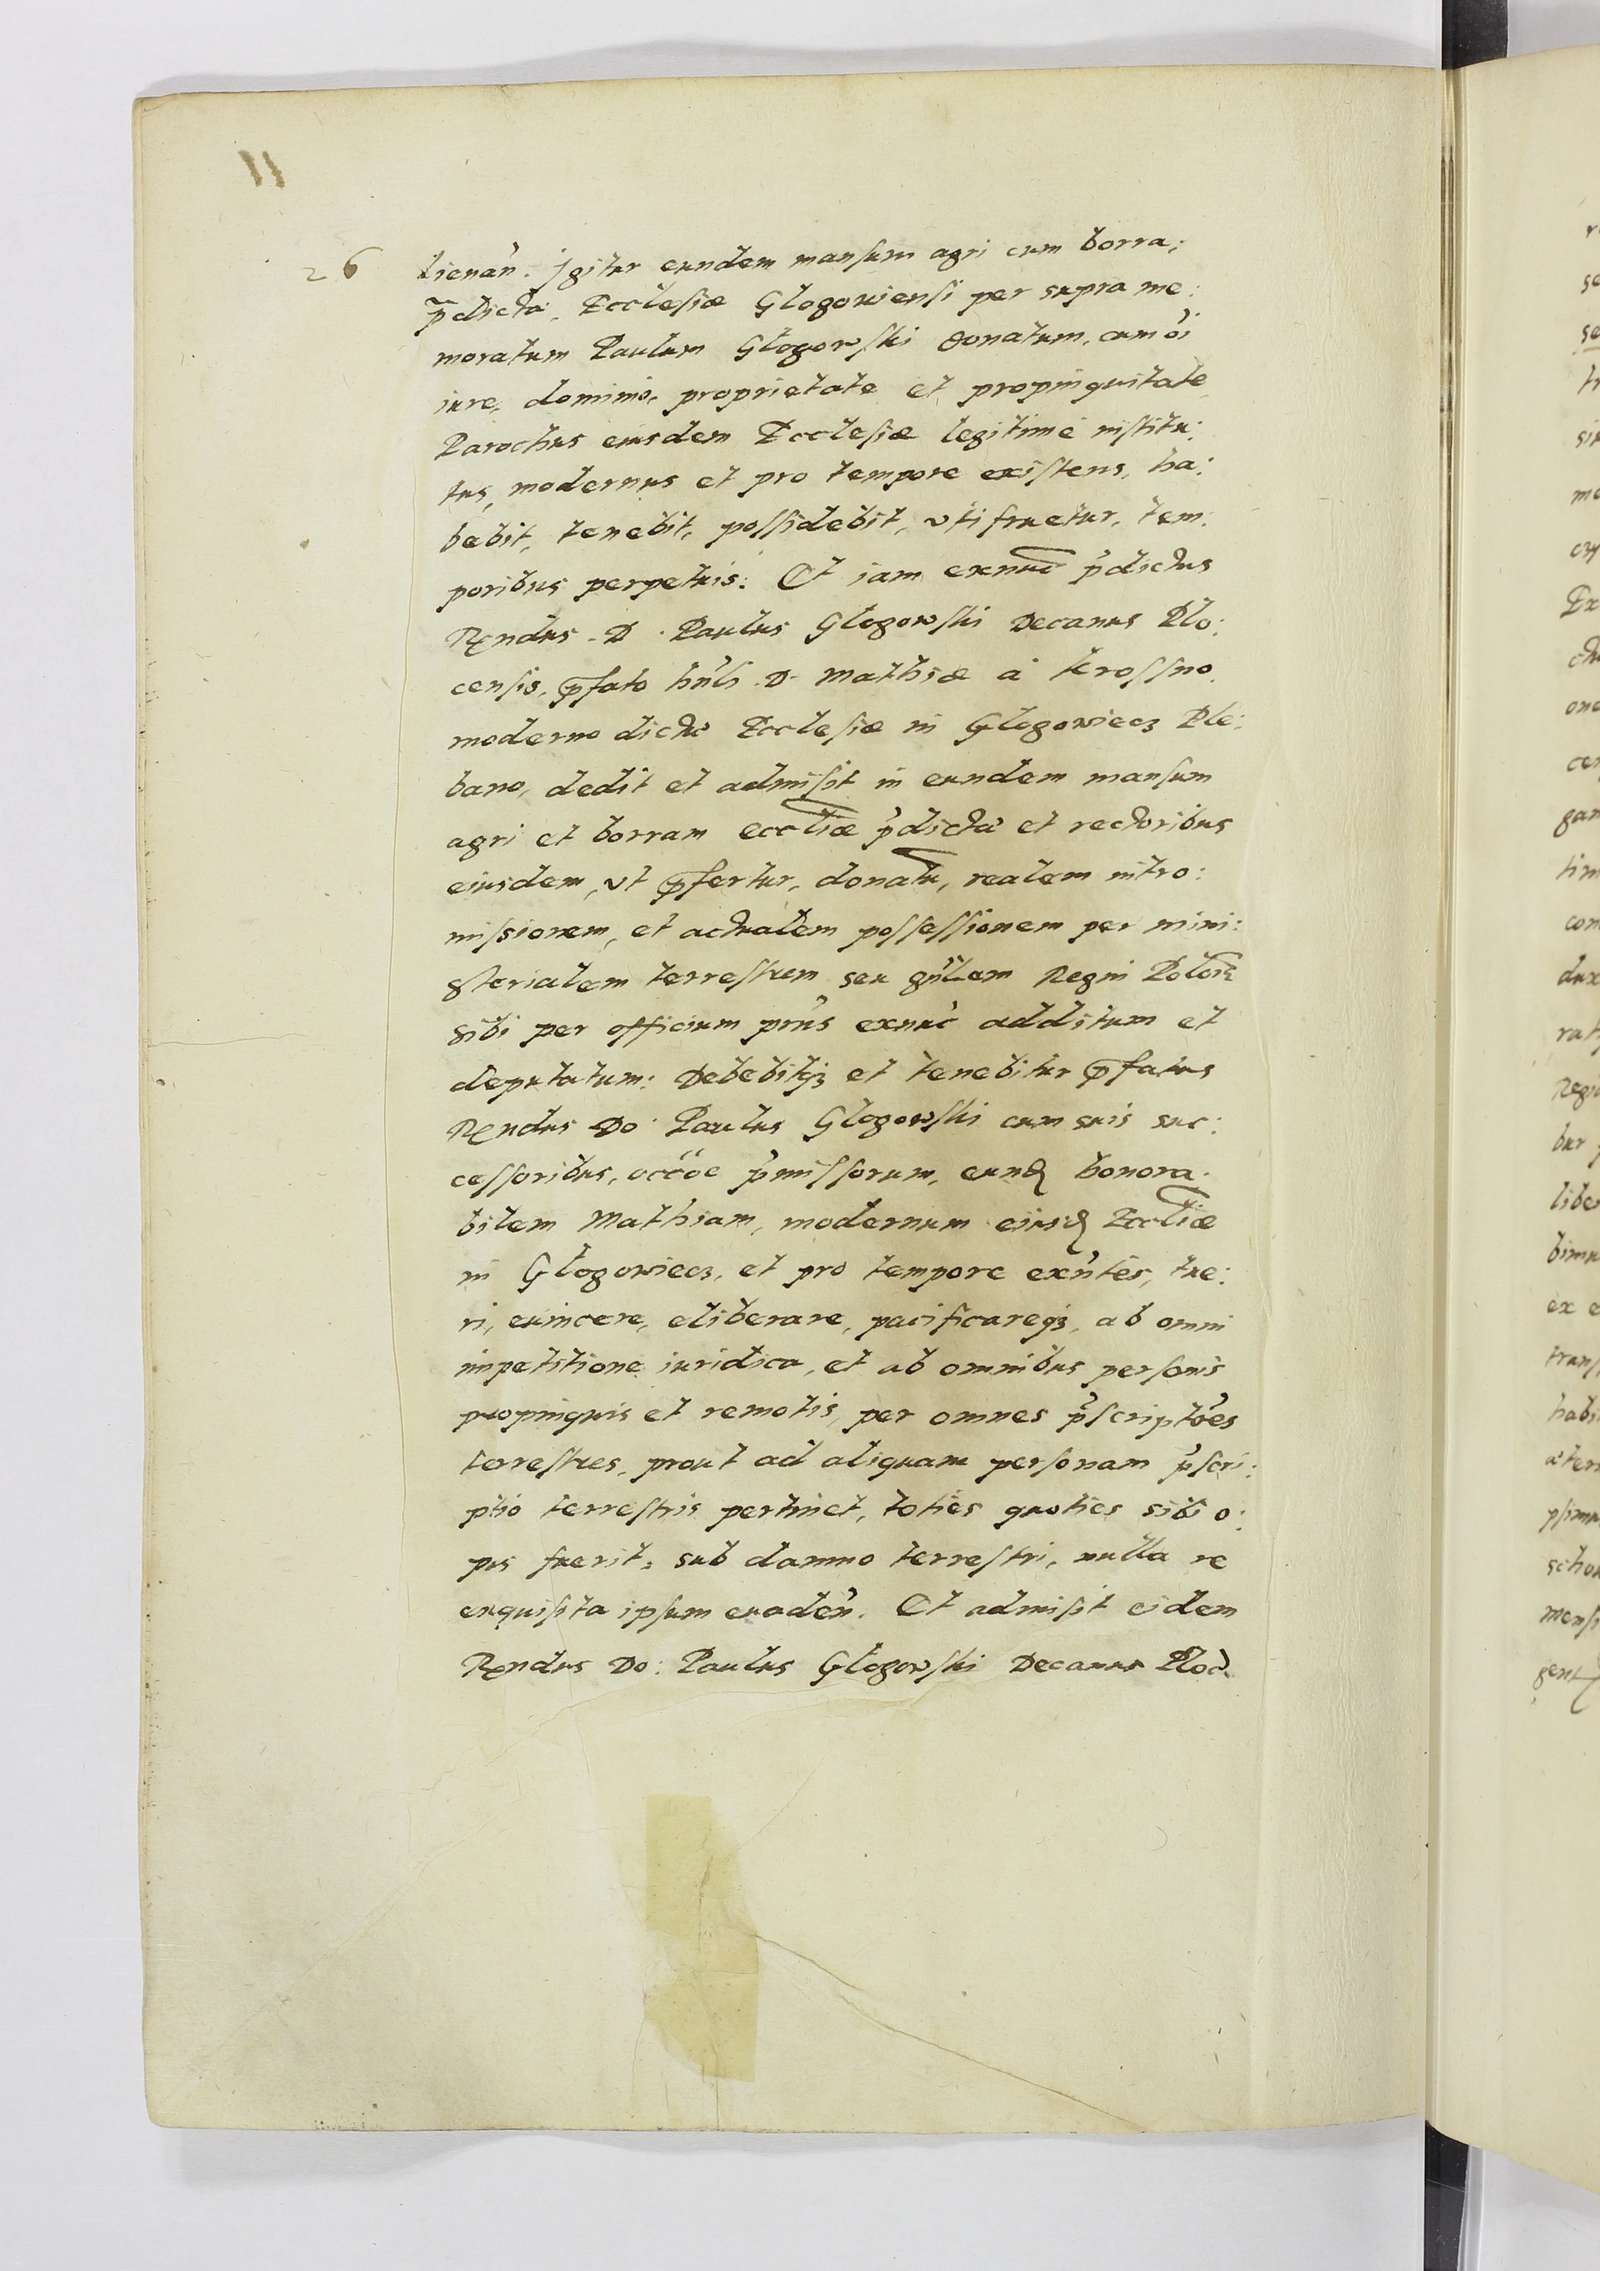 11
26
lienan̄. Igitur eundem mansum agri cum borra;
p̄dictæ, Ecclesiæ Glogoviensi per supra me:
moratum Paulum Glogowski donatum, cum oī
iure, dominio, proprietate et propinquitate
Parochus eiusdem Ecclesiæ legitimè institu:
tus, modernus et pro tempore existens, ha:
bebit, tenebit, possidebit, vti fruetur, tem:
poribus perpetuis: Et iam exnuc̄ p̄dictus
Rendus. D. Paulus Glogowski Decanus Plo:
censis, p̄fato hn̄li D. Mathiæ à Krossno,
moderno dictæ Ecclesiæ in Glogowiecz Ple:
bano, dedit et admisit in eundem mansum
agri et borram eccliæ p̄dictæ et rectoribus
eiusdem, vt p̄fertur, donatu̅, realem intro:
missionem, et actualem possessionem per mini:
sterialem terrestrem seu gn̄lem Regni Polon̄
sibi per officium pn̄s exnuc̄ additum et
deputatum: Debebitqȝ et tenebitur p̄fatus
Rendus Do: Paulus Glogowski cum suis suc:
cessoribus, occōe p̄missorum, eund̄ honora:
bilem Mathiam, modernum eiusd̄ Eccliæ
in Glogowiecz, et pro tempore exn̄tes, tue:
ri, euincere, eliberare, pacificareqȝ, ab omni
impetitione iuridica, et ab omnibus personis
propinquis et remotis, per omnes p̄scriptōes
terrestres, prout ad aliquam personam p̄scri:
ptio terrestris pertinet, toties quoties sibi o:
pus fuerit, sub damno terrestri, nulla re
exquisita ipsum euaden̄. Et admisit eidem
Rendus Do: Paulus Glogowski Decanus Ploc̄.